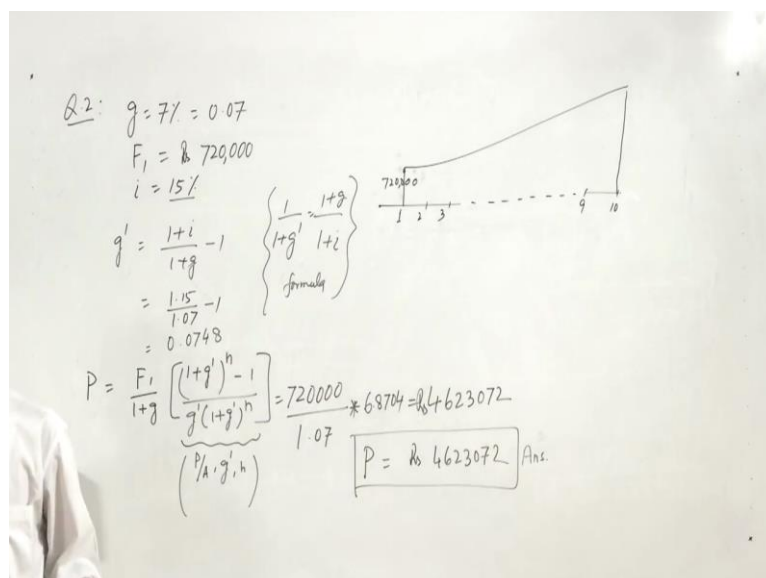 Q.2: g = 7% = 0.07
F₁ = Rs 720,000
i = 15%
g' = (1+i)/(1+g) - 1
= 1.15/1.07 - 1
= 0.0748
{ 1/(1+g') = (1+g)/(1+i) }
formula
720,000
1 2 3 - - - - - - - 9 10
P = F₁/(1+g) [ ((1+g')ⁿ - 1) / (g'(1+g')ⁿ) ] = 720000/1.07 * 6.8704 = Rs 4623072
(P/A, g', n)
P = Rs 4623072 Ans.